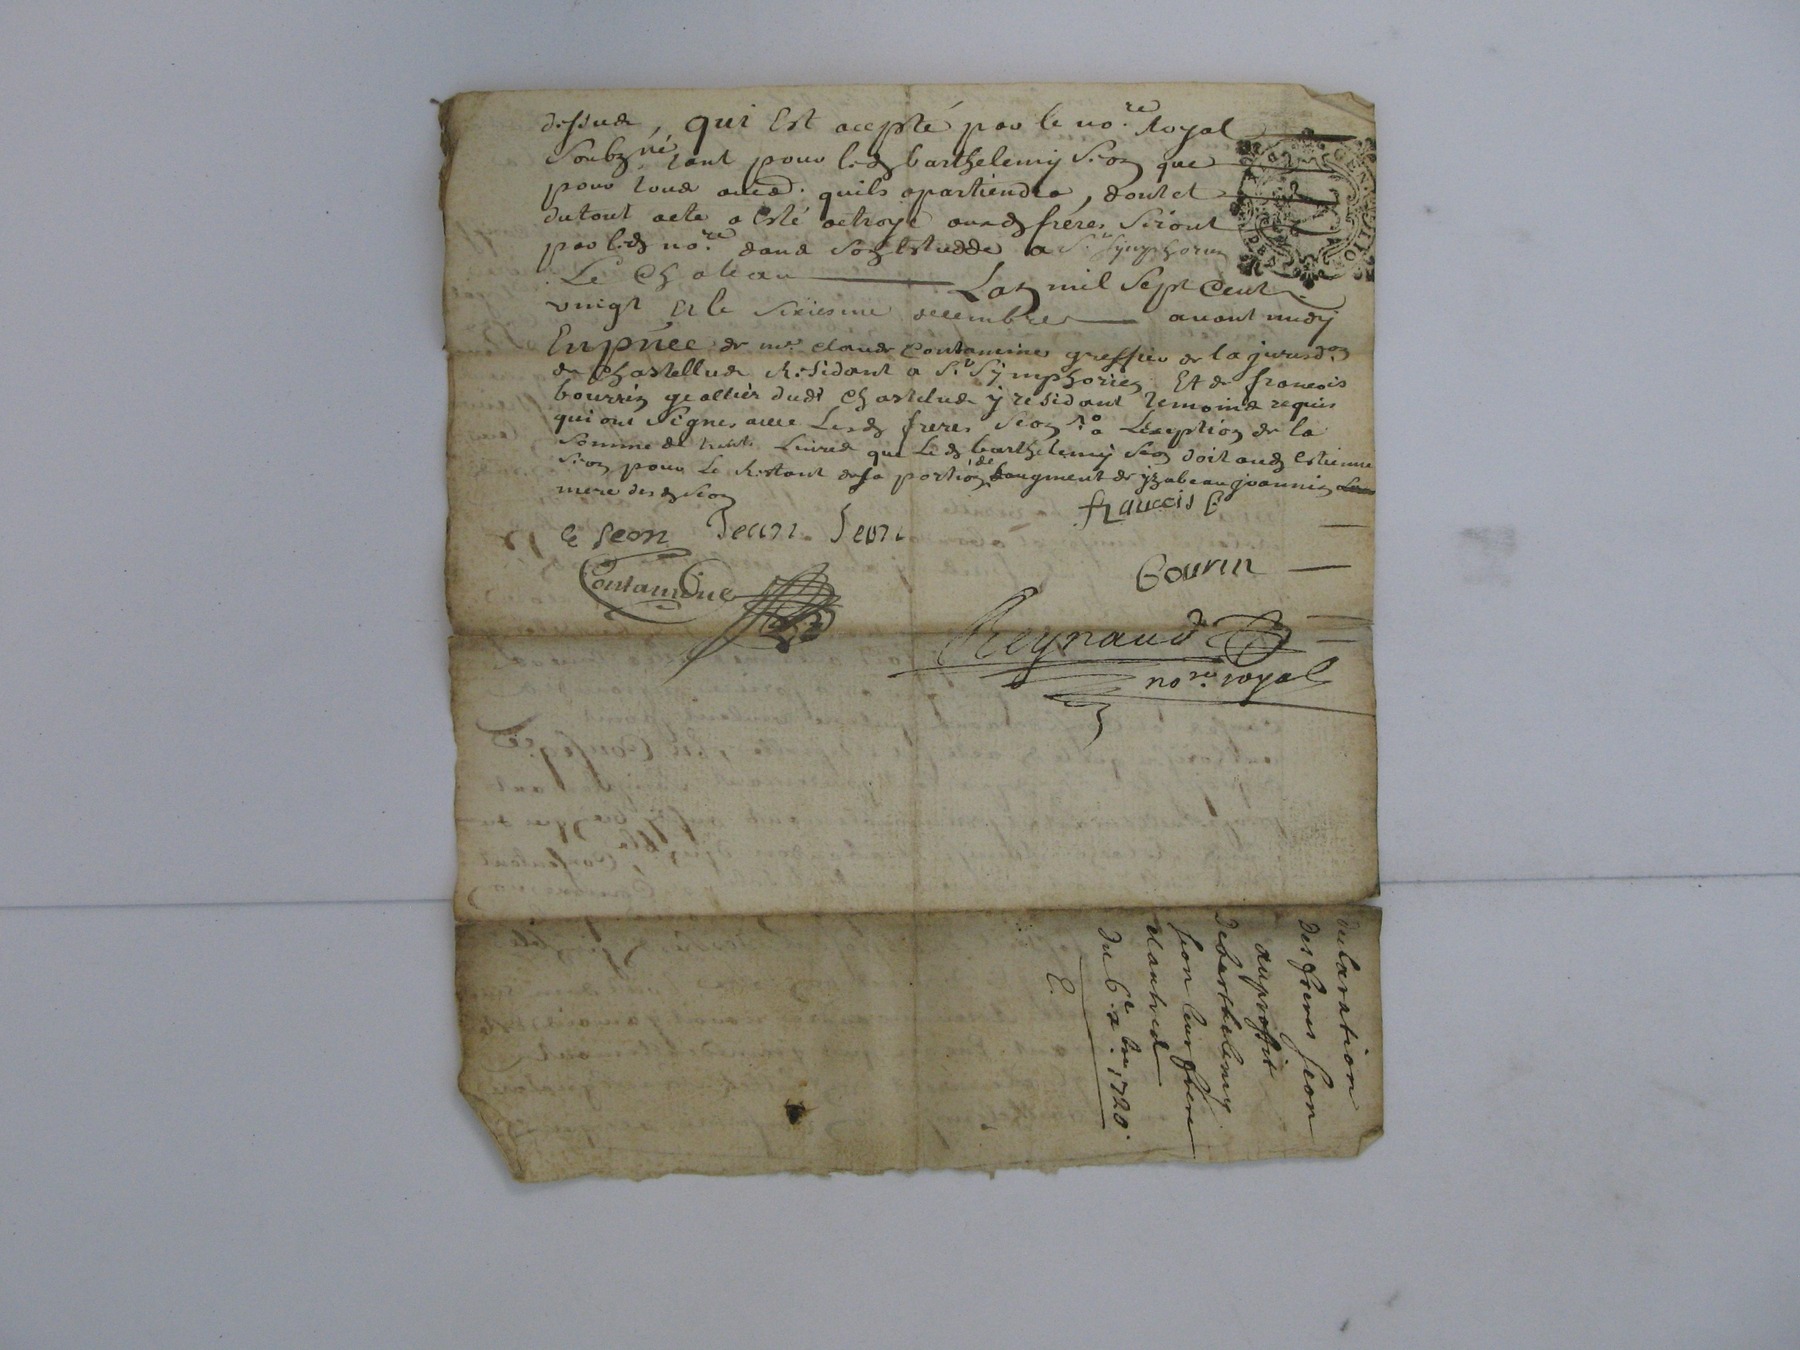 dessus, qui Est accepté par le no.re Royal
Soubzné tant pour led barthelemy Seon que
pour tous autres quils apartiendra, dont et
du tout acte a Esté octroyé auxd freres Siont
par led no.re dans son Estudde a St Symphorien
Le Chateau Lan mil Sept Cent
vingt Et le Sixiesme decembre avant midy
En pñce de me claude Contamine greffier de la jurisdon
de Chastellus Residant a St Symphorien Et de francois
bourrin geollier dudt Chastelus y residant temoins requis
qui ont Signes avec Lesd freres Seon a Lexeption de la
Somme de Livres que Led barthelemy Seon doit aud Estienne
Seon pour Le Restant de sa portion de Laugment de yzabeau joannin
mere desd Seon
e Seon Jean Seon
francois B
Contamine
bourin
Reynaud
no.re royal
declaration
des freres Seon
au proffit
de barthelemy
Seon leur frere
du 6e xbre 1720.